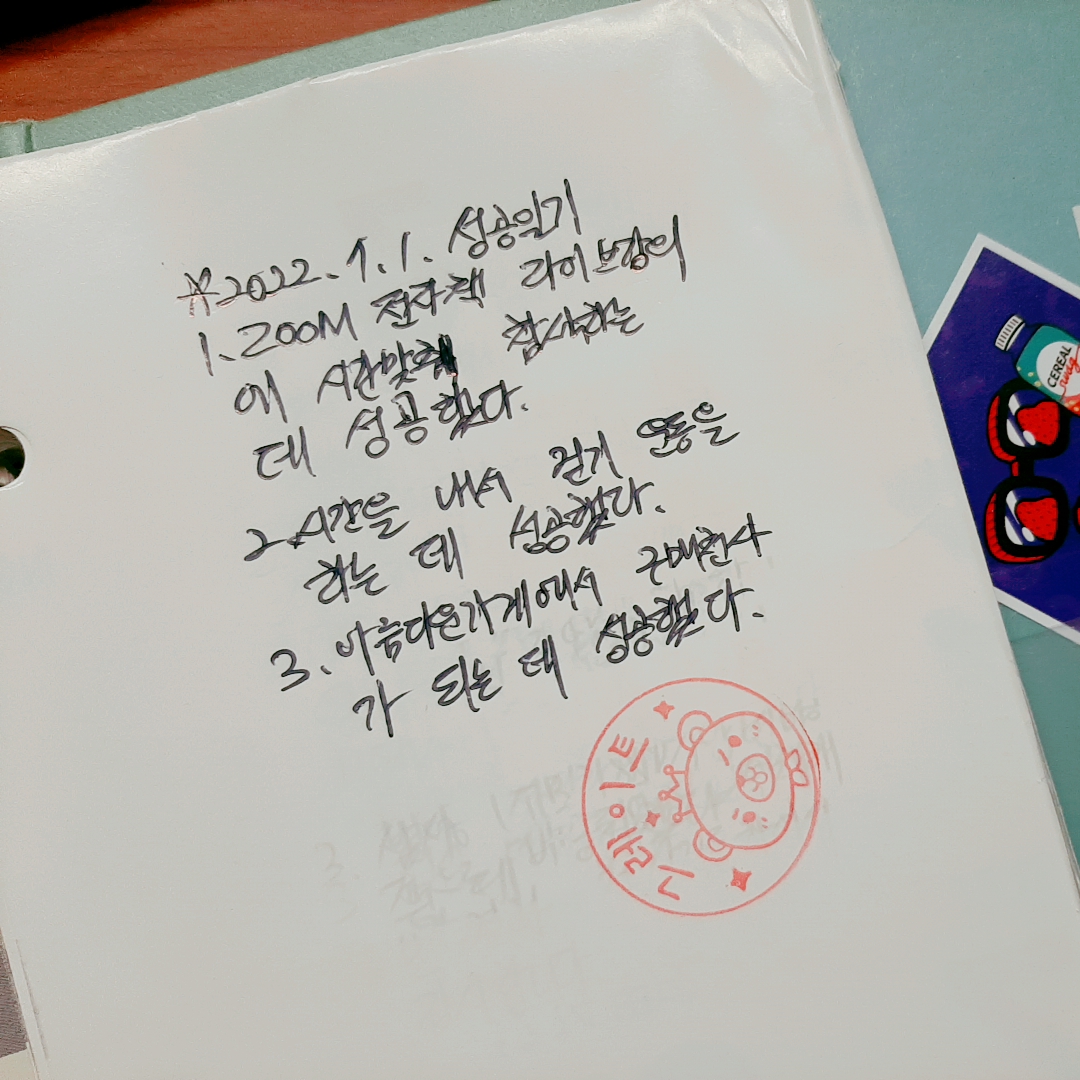 ☆2022.1.1. 성공일기
1. ZOOM 전자책 라이브강의
에 시간맞춰 참석하는
데 성공했다.
2. 시간을 내서 걷기 운동을
하는 데 성공했다.
3. 아름다운가게에서 구매천사
가 되는 데 성공했다.
그레이트
CEREAL